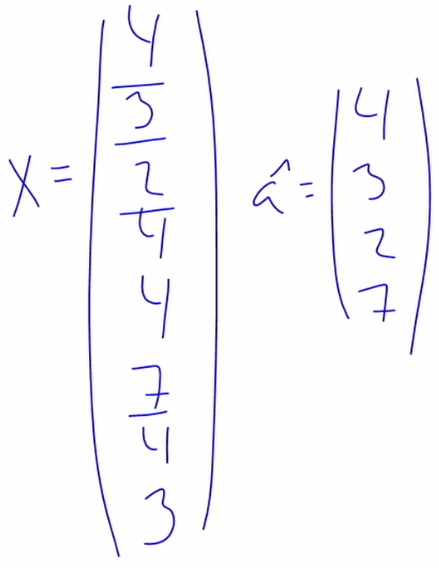 X = 
4
3
2
4
4
7
4
3
â =
4
3
2
7